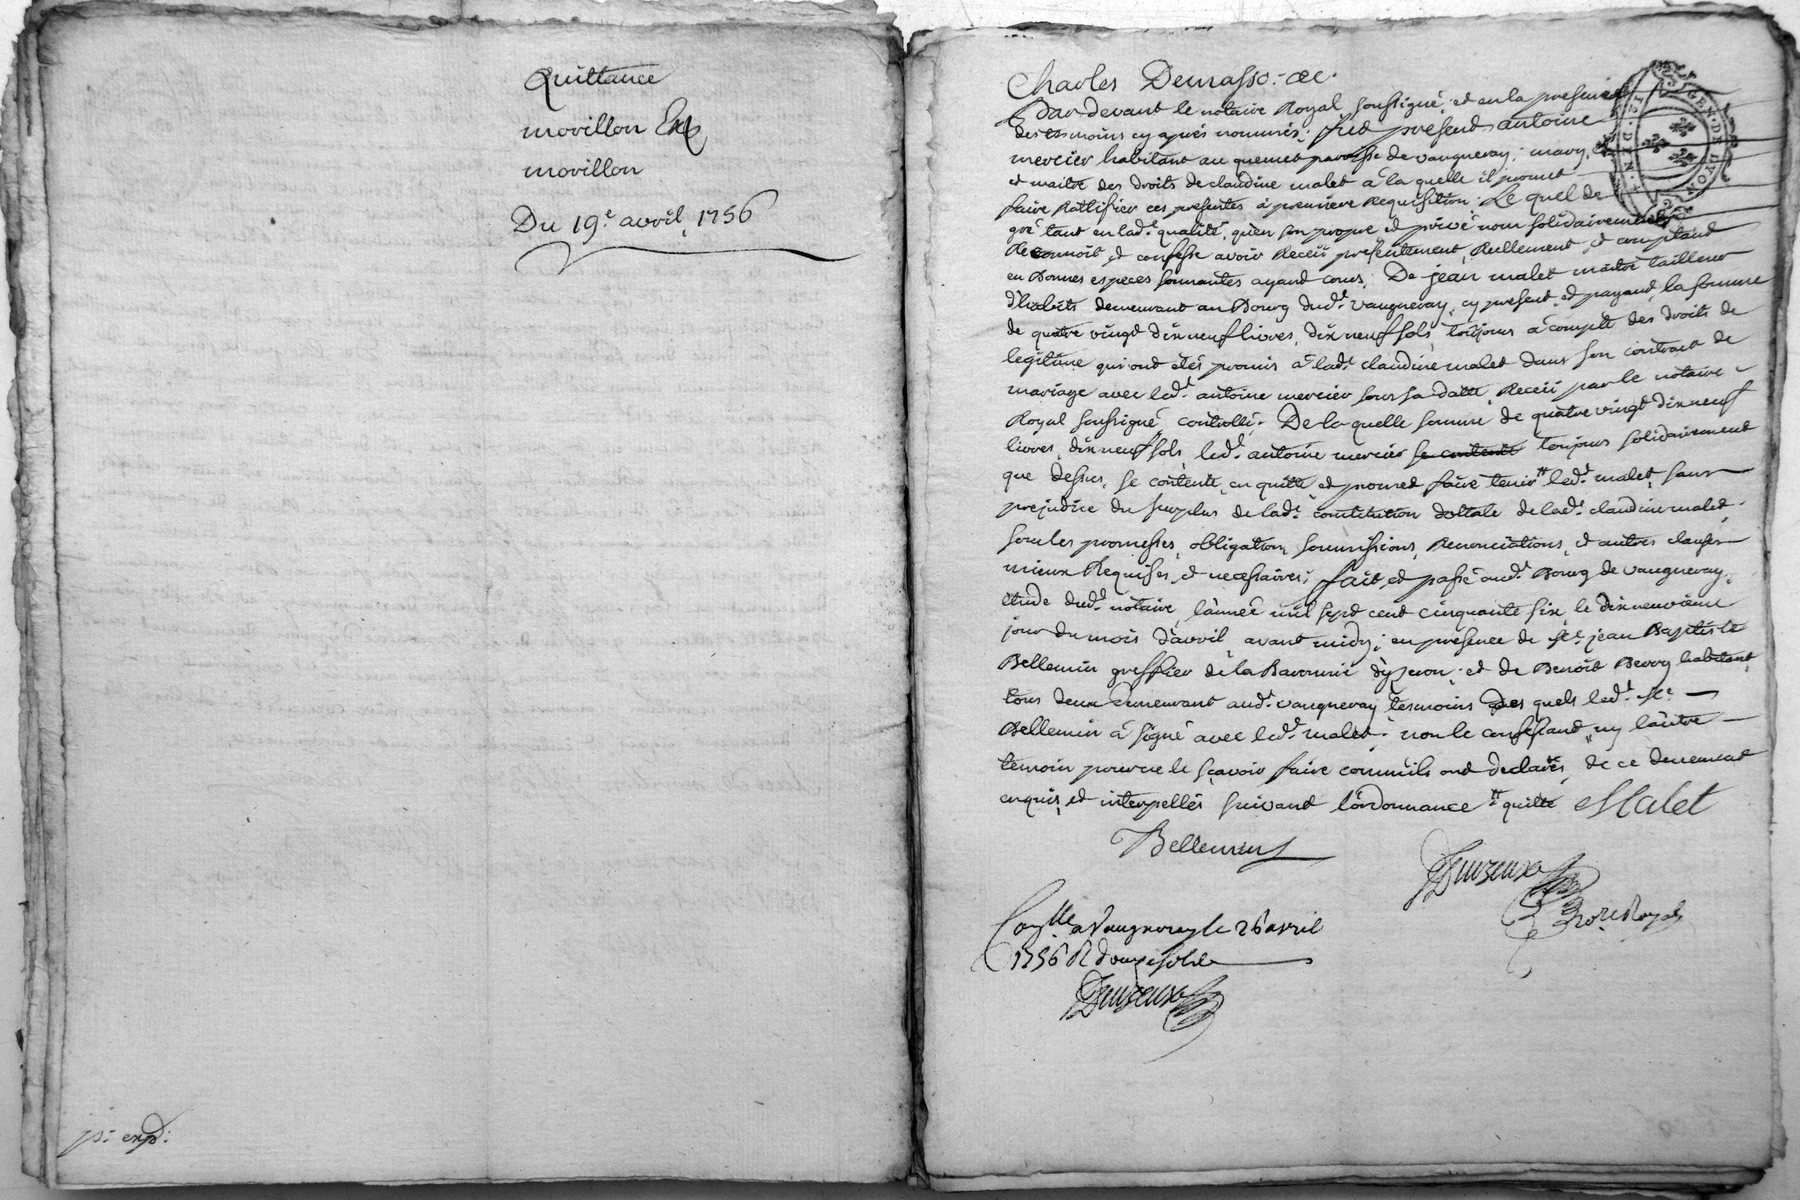 Quittance
movillon Exp
movillon
Du 19e. avril, 1756
p:. exp:
GEN. DE LYON
Charles
Pardevant le notaire Royal soussigné, et en la presence
des temoins cy après nommés; fut present antoine
mercier habitant au quemet parroisse de vaugneray; mary
et maitre des droits de claudine malet à la quelle il promet
faire Rattifier ces presentes à premiere Requisition: Le quel de
gré tant en lade. qualité, qu'en son propre et privé nom solidairement
Reconnoit, et confesse avoir Receü présentement, Réellement, et comptant
en Bonnes especes sonnantes ayand cours; De jean malet maitre tailleur
d'habits demeurant au Bourg dudt. vaugneray, cy present, et payand, la somme
de quatre vingt dix neuf livres, dix neuf sols, toujours à compte des droits de
legitime qui ont étés promis à lade. claudine malet dans son contrait de
mariage avec ledt. antoine mercier sous sa datte, Receü par le notaire
Royal soussigné, controllé; De la quelle somme de quatre vingt dix neuf
livres, dix neuf sols, ledt. antoine mercier se contente toujours solidairement
que dessus, se contente, en quitte et promet faire tenir # ledt. malet, sans
prejudice du surplus de lade. constitution dottale de lade. claudine malet.
sous les promesses, obligation, soumissions, Renonciations, et autres clauses
mieux Requises, et necessaires; fait, et passé audt. Bourg de vaugneray,
étude dudt. notaire, l'année mil sept cent cinquante six, le dix neuvieme
jour du mois d'avril avant midy; en presence de sr. jean Baptiste
Bellemin greffier de la Baronnie d'yzeron; et de Benoît Berry habitant,
tous deux demeurant audt. vaugneray temoins des quels ledt. sr.
Bellemin à signé avec ledt. malet; non le confessand, ny l'autre
temoin pour ne le sçavoir faire comm'ils ont declarés, de ce deuement
enquis, et interpellés suivant l'ordonnance # quitte Malet
Bellemin
Nore. Royal
Conlle a Vaugneray le 26 avril
1756 R douze sols